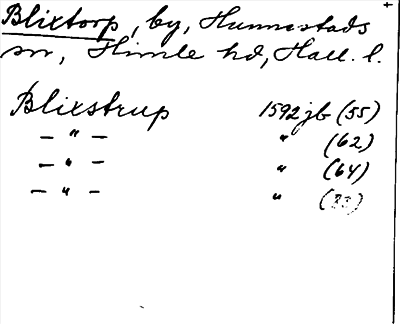 Blixtorp, by, Hunnestads
sn, Himle hd, Hall. l.
Blixstrup 1592 jb (55)
— " — " (62)
— " — " (64)
— " — "